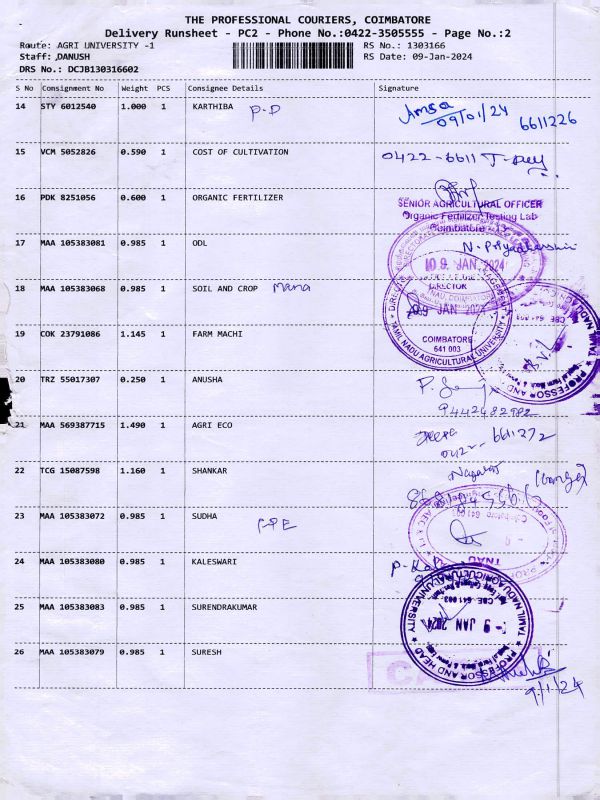 THE PROFESSIONAL COURIERS, COIMBATORE
Delivery Runsheet - PC2 - Phone No.:0422-3505555 - Page No.:2
Route: AGRI UNIVERSITY -1 RS No.: 1303166
Staff: DANUSH RS Date: 09-Jan-2024
DRS No.: DCJB130316602
S No Consignment No Weight PCS Consignee Details Signature
14 STY 6012540 1.000 1 KARTHIBA P-D Amsa
09/01/24 6611226
15 VCM 5052826 0.590 1 COST OF CULTIVATION 0422-6611
16 PDK 8251056 0.600 1 ORGANIC FERTILIZER
SENIOR AGRICULTURAL OFFICER
Organic Fertilizer Testing Lab
Coimbatore - 13
17 MAA 105383081 0.985 1 ODL N. Priyadharshini
09 JAN 2024
DIRECTOR
18 MAA 105383068 0.985 1 SOIL AND CROP Mana
COIMBATORE
641 003
TAMIL NADU AGRICULTURAL UNIVERSITY
19 COK 23791086 1.145 1 FARM MACHI
PROFESSOR AND
20 TRZ 55017307 0.250 1 ANUSHA
9442482982
21 MAA 569387715 1.490 1 AGRI ECO Deepa
0422-6611272
22 TCG 15087598 1.160 1 SHANKAR Nagaraj
23 MAA 105383072 0.985 1 SUDHA
TNAU
24 MAA 105383080 0.985 1 KALESWARI
25 MAA 105383083 0.985 1 SURENDRAKUMAR
TAMIL NADU AGRICULTURAL UNIVERSITY
CBE 641 003
-9 JAN 2024
PROFESSOR AND HEAD
26 MAA 105383079 0.985 1 SURESH
9/1/24